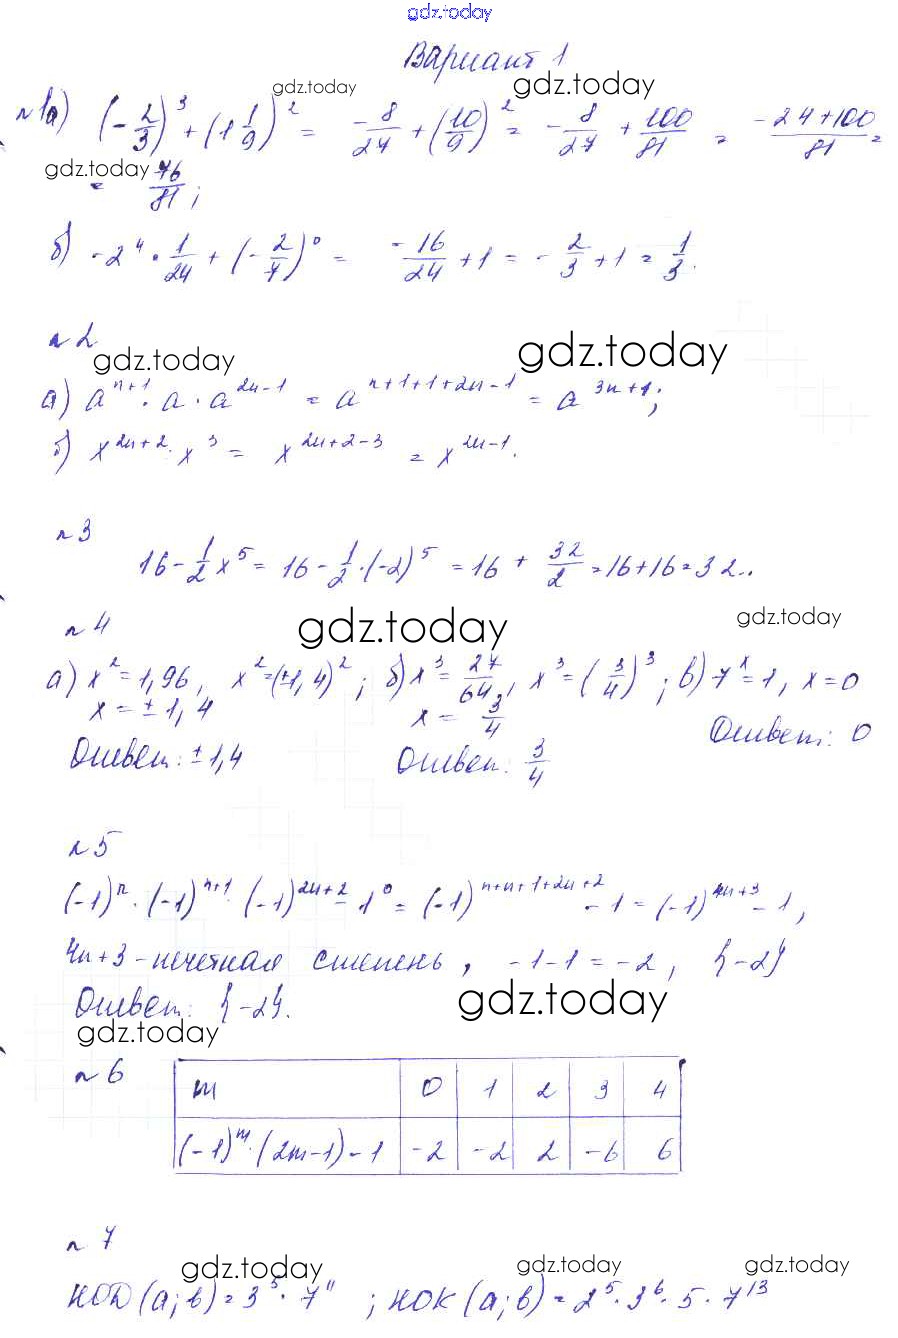 gdz.today
Вариант 1
gdz.today gdz.today
№1а) (-2/3)^3 + (1 1/9)^2 = -8/27 + (10/9)^2 = -8/27 + 100/81 = (-24+100)/81 =
gdz.today
= 76/81;
б) -2^4 · 1/24 + (-2/7)^0 = -16/24 + 1 = -2/3 + 1 = 1/3.
№2
gdz.today gdz.today
а) a^(n+1) · a · a^(2n-1) = a^(n+1+1+2n-1) = a^(3n+1);
б) x^(2n+2) · x^3 = x^(2n+2-3) = x^(2n-1).
№3
16 - 1/2 x^5 = 16 - 1/2 · (-2)^5 = 16 + 32/2 = 16+16 = 32..
№4 gdz.today gdz.today
а) x^2 = 1,96, x^2 = (±1,4)^2; б) x^3 = 27/64, x^3 = (3/4)^3; в) 7^x = 1, x = 0
x = ±1,4 x = 3/4
Ответ: ±1,4 Ответ: 3/4 Ответ: 0
№5
(-1)^n · (-1)^(n+1) · (-1)^(2n+2) - 1^0 = (-1)^(n+n+1+2n+2) - 1 = (-1)^(4n+3) - 1,
4n+3 - нечетная степень, -1-1 = -2, {-2}
Ответ: {-2}.
gdz.today gdz.today
№6
m 0 1 2 3 4
(-1)^m · (2m-1) - 1 -2 -2 2 -6 6
№7
gdz.today gdz.today gdz.today
НОД (a; b) = 3^5 · 7^11; НОК (a; b) = 2^5 · 3^6 · 5 · 7^13